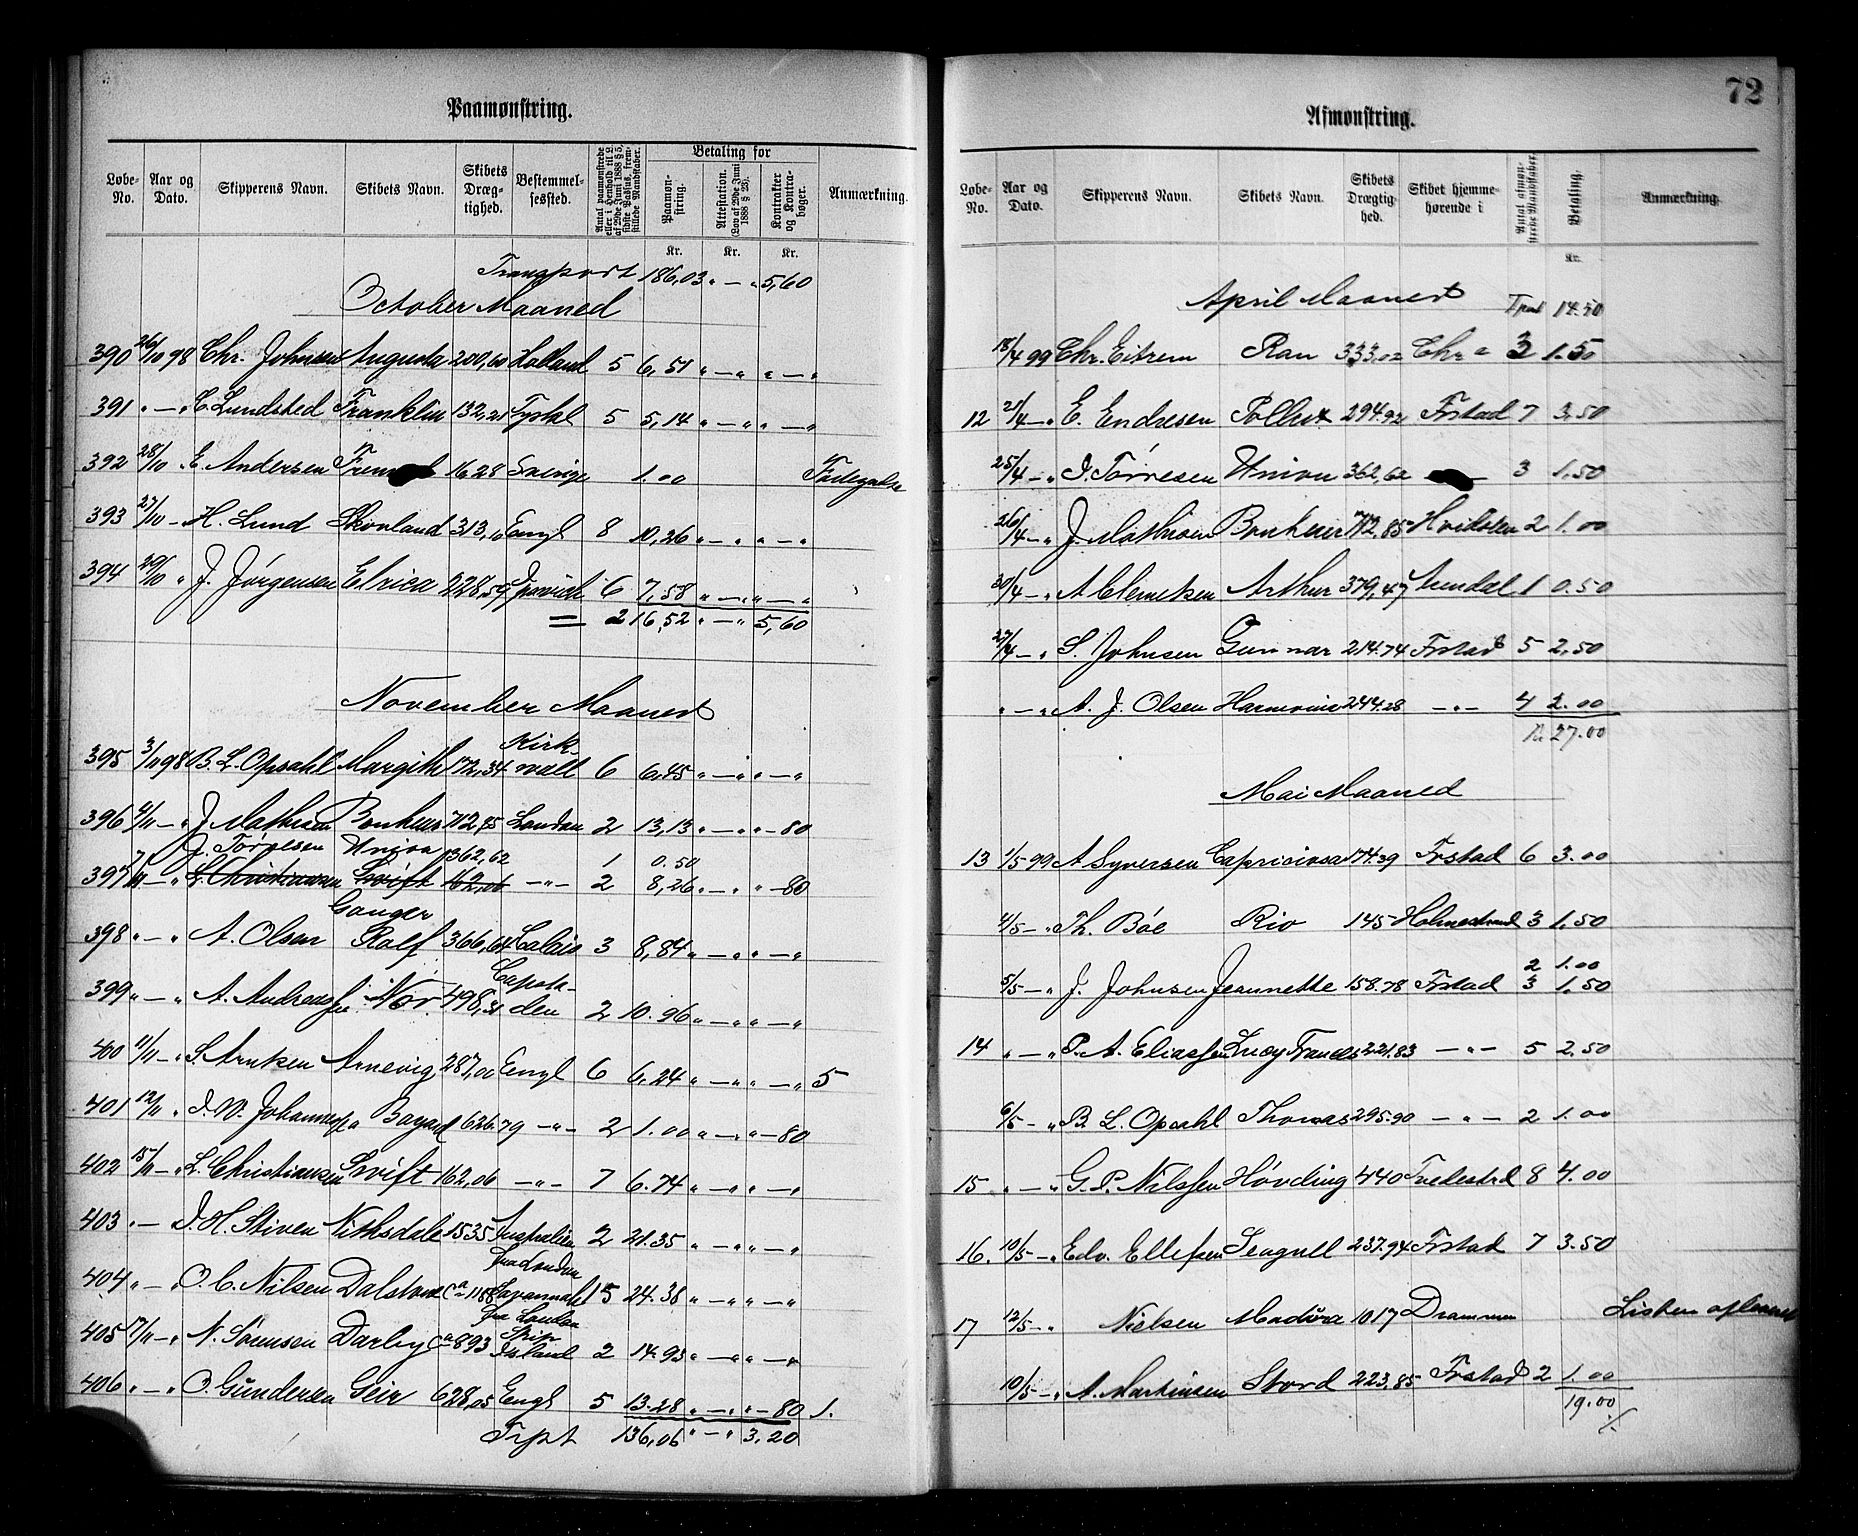 Paamønstring.
Løbe-No. Aar og Dato. Skipperens Navn. Skibets Navn. Skibets Dræg-tighed. Bestemmel-sessted. Antal paamønstrede eller i Henhold til L. af 29de Juni 1888 § 5, sidste Passus, frem-stillede Mandskaber. Betaling for Paamøn-string. Attestation. (Lov af 29de Juni 1888 § 23). Kontrakter og Kontra-bøger. Anmærkning.
Kr. Kr. Kr.
Transport 186,03 " — " 5,60
October Maaned
390 26/10 98 Chr. Johnsen Augusta 200,60 Holland 5 6,51 " — " " — "
391 " — " C. Lundsted Franklin 132,21 Tyskl 5 5,14 " — " " — "
392 28/10 E. Andersen 16,28 Sverige 1.00
393 27/10 — H. Lund Skonland 313,10 Engl 8 10,26 " — " " — "
394 29/10 " J. Jørgensen Elrica 228,59 Ipswich 6 7,58 " — " " — "
= 216,52 " — " 5,60
November Maaned
395 3/11 98 B. L. Opsahl Margith 172,34 Kirk-wall 6 6,45 " — " " — "
396 4/11 — " J. Mathisen Bonheur 712,85 London 2 13,13 " — " " — 80
J. Tørresen Union 362,62 1 0.50
397 7/11 — " L. Christiansen Swift 162,06 — " — 2 8,26 " — " " — 80
398 " — " A. Olsen Ganger Rolf 366,64 Calais 3 8,84 " — " " — "
399 " — " A. Andreassen Nor. 498,31 2 10.96 " — " " — "
400 11/11 — " S. Arntsen Arnevig 287,00 Engl 6 6,24 " — " " — " 5
401 12/11 " J. W. Johannesen Bayard 626.79 — " — 2 1.00 " — " " — 80
402 15/11 — " L. Christiansen Swift 162,06 — " — 7 6.74 " — " " — "
403 " — J. H. Stiven Nithsdale 1535 Australien fra London 2 21.35 " — " " — "
404 " — " O. C. Nilsen Dalston Ca 1188 Savannah fra London 15 24.38 " — " " — "
405 17/11 — " N. Sørensen Darby Ca 893 Ship Island 2 14.93 " — " " — "
406 " — " O. Gundersen Geir 628,05 Engl 5 13.28 " — " " — 80 1.
Trpt 136,06 " — " 3,20
72
Afmønstring.
Løbe-No. Aar og Dato. Skipperens Navn. Skibets Navn. Skibets Drægtig-hed. Skibet hjemme-hørende i Antal afmøn-strede Mandskaber. Betaling. Anmærkning.
Kr.
April Maaned Tpot 14.50
18/4 99 Chr. Eitrem Ran 333.02 Chr a 3 1.50
12 21/4 — " E. Endresen Pollux 294.92 Frstad 7 3.50
25/4 — " J. Tørresen Union 362,62 3 1.50
26/4 — " J. Mathisen Bonheur 712,85 Hvidsten 2 1.00
20/4 — " A. Clemetsen Arthur 379,47 Arendal 1 0.50
27/4 — " S. Johnsen Gunnar 214.74 Frstad 5 2,50
" — " A. J. Olsen Harmonie 244.28 — " — 4 2.00
Kr 27.00
Mai Maaned
13 1/5 99 A Syversen Capricieosa 174.39 Frstad 6 3.00
4/5 — " Th. Bøe Rio 145 Holmestrand 3 1.50
2 1.00
5/5 — " J. Johnsen Jeannette 158.78 Frstad 3 1,50
14 " — " P. A. Eliassen Lucy Frances 221.83 — " — 5 2.50
6/5 — " B. L. Opsahl Thomas 295.90 — " — 2 1.00
15 " — " G. P. Nilssen Høvding 440 Tvedestrd 8 4.00
16. 10/5 — " Edv. Ellefsen Seagull 237.94 Frstad 7 3.50
17 12/5 — " Nielsen Madura 1017 Drammen Listen afleveret
10/5 — " A. Martinsen Stord 223.85 Frstad 2 1.00
19.00